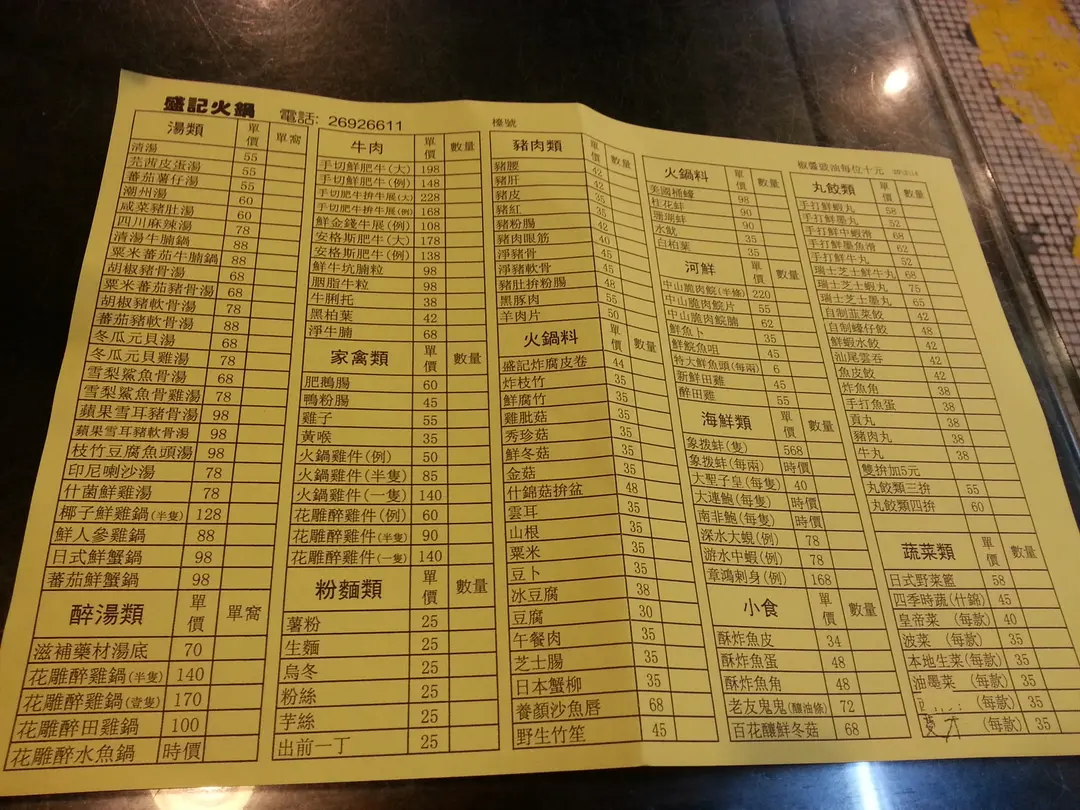 盛記火鍋 電話: 26926611 檯號
椒醬豉油每位十元
湯類 單價 單窩
清湯 55
芫茜皮蛋湯 55
蕃茄薯仔湯 55
潮州湯 60
咸菜豬肚湯 60
四川麻辣湯 78
清湯牛腩鍋 88
粟米蕃茄牛腩鍋 88
胡椒豬骨湯 68
粟米蕃茄豬骨湯 68
胡椒豬軟骨湯 78
蕃茄豬軟骨湯 88
冬瓜元貝湯 68
冬瓜元貝雞湯 78
雪梨鯊魚骨湯 68
雪梨鯊魚骨雞湯 78
蘋果雪耳豬骨湯 98
蘋果雪耳豬軟骨湯 98
枝竹豆腐魚頭湯 98
印尼喇沙湯 78
什菌鮮雞湯 78
椰子鮮雞鍋(半隻) 128
鮮人參雞鍋 88
日式鮮蟹鍋 98
蕃茄鮮蟹鍋 98
醉湯類 單價 單窩
滋補藥材湯底 70
花雕醉雞鍋(半隻) 140
花雕醉雞鍋(壹隻) 170
花雕醉田雞鍋 100
花雕醉水魚鍋 時價
牛肉 單價 數量
手切鮮肥牛(大) 198
手切鮮肥牛(例) 148
手切肥牛拚牛展(大) 228
手切肥牛拚牛展(例) 168
鮮金錢牛展(例) 108
安格斯肥牛(大) 178
安格斯肥牛(例) 138
鮮牛坑腩粒 98
胭脂牛粒 98
牛脷托 38
黑柏葉 42
淨牛腩 68
家禽類 單價 數量
肥鵝腸 60
鴨粉腸 45
雞子 55
黃喉 35
火鍋雞件(例) 50
火鍋雞件(半隻) 85
火鍋雞件(一隻) 140
花雕醉雞件(例) 60
花雕醉雞件(半隻) 90
花雕醉雞件(一隻) 140
粉麵類 單價 數量
薯粉 25
生麵 25
烏冬 25
粉絲 25
芋絲 25
出前一丁 25
豬肉類 單價 數量
豬腰 42
豬肝 42
豬皮 35
豬紅 35
豬粉腸 42
豬肉眼筋 40
淨豬骨 45
淨豬軟骨 45
豬肚拚粉腸 48
黑豚肉 55
羊肉片 50
火鍋料 單價 數量
盛記炸腐皮卷 44
炸枝竹 35
鮮腐竹 35
雞肶菇 35
秀珍菇 35
鮮冬菇 35
金菇 35
什錦菇拚盆 48
雲耳 35
山根 35
粟米 35
豆卜 35
冰豆腐 38
豆腐 30
午餐肉 35
芝士腸 35
日本蟹柳 35
養顏沙魚唇 68
野生竹笙 45
火鍋料 單價 數量
美國桶蠔 98
桂花蚌 90
珊瑚蚌 90
水魷 35
白柏葉 35
河鮮 單價 數量
中山脆肉鯇(半條) 220
中山脆肉鯇片 55
中山脆肉鯇腩 62
鮮魚卜 35
鮮鯇魚咀 45
特大鮮魚頭(每兩) 6
新鮮田雞 45
醉田雞 55
海鮮類 單價 數量
象拔蚌(隻) 568
象拔蚌(每兩) 時價
大聖子皇(每隻) 40
大連鮑(每隻) 時價
南非鮑(每隻) 時價
深水大蜆(例) 78
游水中蝦(例) 78
章鴻刺身(例) 168
小食 單價 數量
酥炸魚皮 34
酥炸魚蛋 48
酥炸魚角 48
老友鬼鬼(釀油條) 72
百花釀鮮冬菇 68
丸餃類 單價 數量
手打鮮蝦丸 58
手打鮮墨丸 52
手打鮮中蝦滑 68
手打鮮墨魚滑 62
手打鮮牛丸 52
瑞士芝士鮮牛丸 68
瑞士芝士蝦丸 75
瑞士芝士墨丸 65
自制韮菜餃 42
自制蠔仔餃 48
鮮蝦水餃 42
汕尾雲吞 42
魚皮餃 42
炸魚角 38
手打魚蛋 38
貢丸 38
豬肉丸 38
牛丸 38
雙拚加5元
丸餃類三拚 55
丸餃類四拚 60
蔬菜類 單價 數量
日式野菜籃 58
四季時蔬(什錦) 45
皇帝菜 (每款) 40
菠菜 (每款) 35
本地生菜(每款) 35
油墨菜 (每款) 35
(每款) 35
(每款) 35